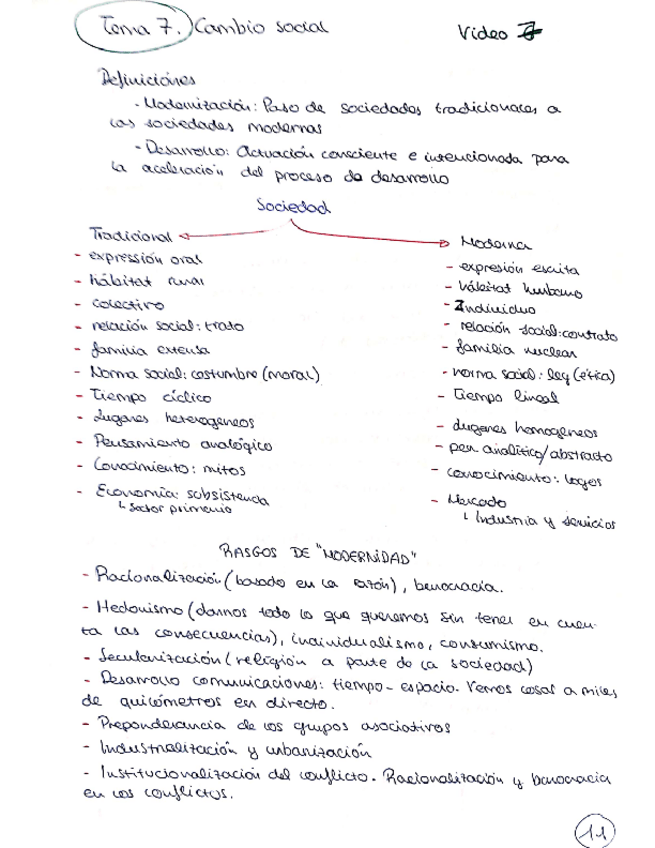 Tema 7. Cambio social
Video 7
Definiciones
- Modernización: Paso de sociedades tradicionales a
las sociedades modernas
- Desarrollo: Actuación consciente e intencionada para
la aceleración del proceso de desarrollo
Sociedad
Tradicional
- expressión oral
- hábitat rural
- colectivo
- relación social: trato
- familia extensa
- Norma social: costumbre (moral)
- Tiempo cíclico
- Lugares heterogeneos
- Pensamiento analógico
- Conocimiento: mitos
- Economía: subsistencia
↳ sector primario
Moderna
- expresión escrita
- hábitat hurbano
- Individuo
- relación social: contrato
- familia nuclear
- norma social: ley (ética)
- Tiempo lineal
- Lugares homogéneos
- pen analítico/abstracto
- conocimiento: logos
- Mercado
↳ Industria y servicios
RASGOS DE "MODERNIDAD"
- Racionalización (basado en la razón), burocracia.
- Hedonismo (darnos todo lo que queremos sin tener en cuen-
ta las consecuencias), individualismo, consumismo.
- Secularización (religión a parte de la sociedad)
- Desarrollo comunicaciones: tiempo - espacio. Vemos cosas a miles
de quilómetros en directo.
- Preponderancia de los grupos asociativos
- Industrialización y urbanización
- Institucionalización del conflicto. Racionalización y burocracia
en los conflictos.
11